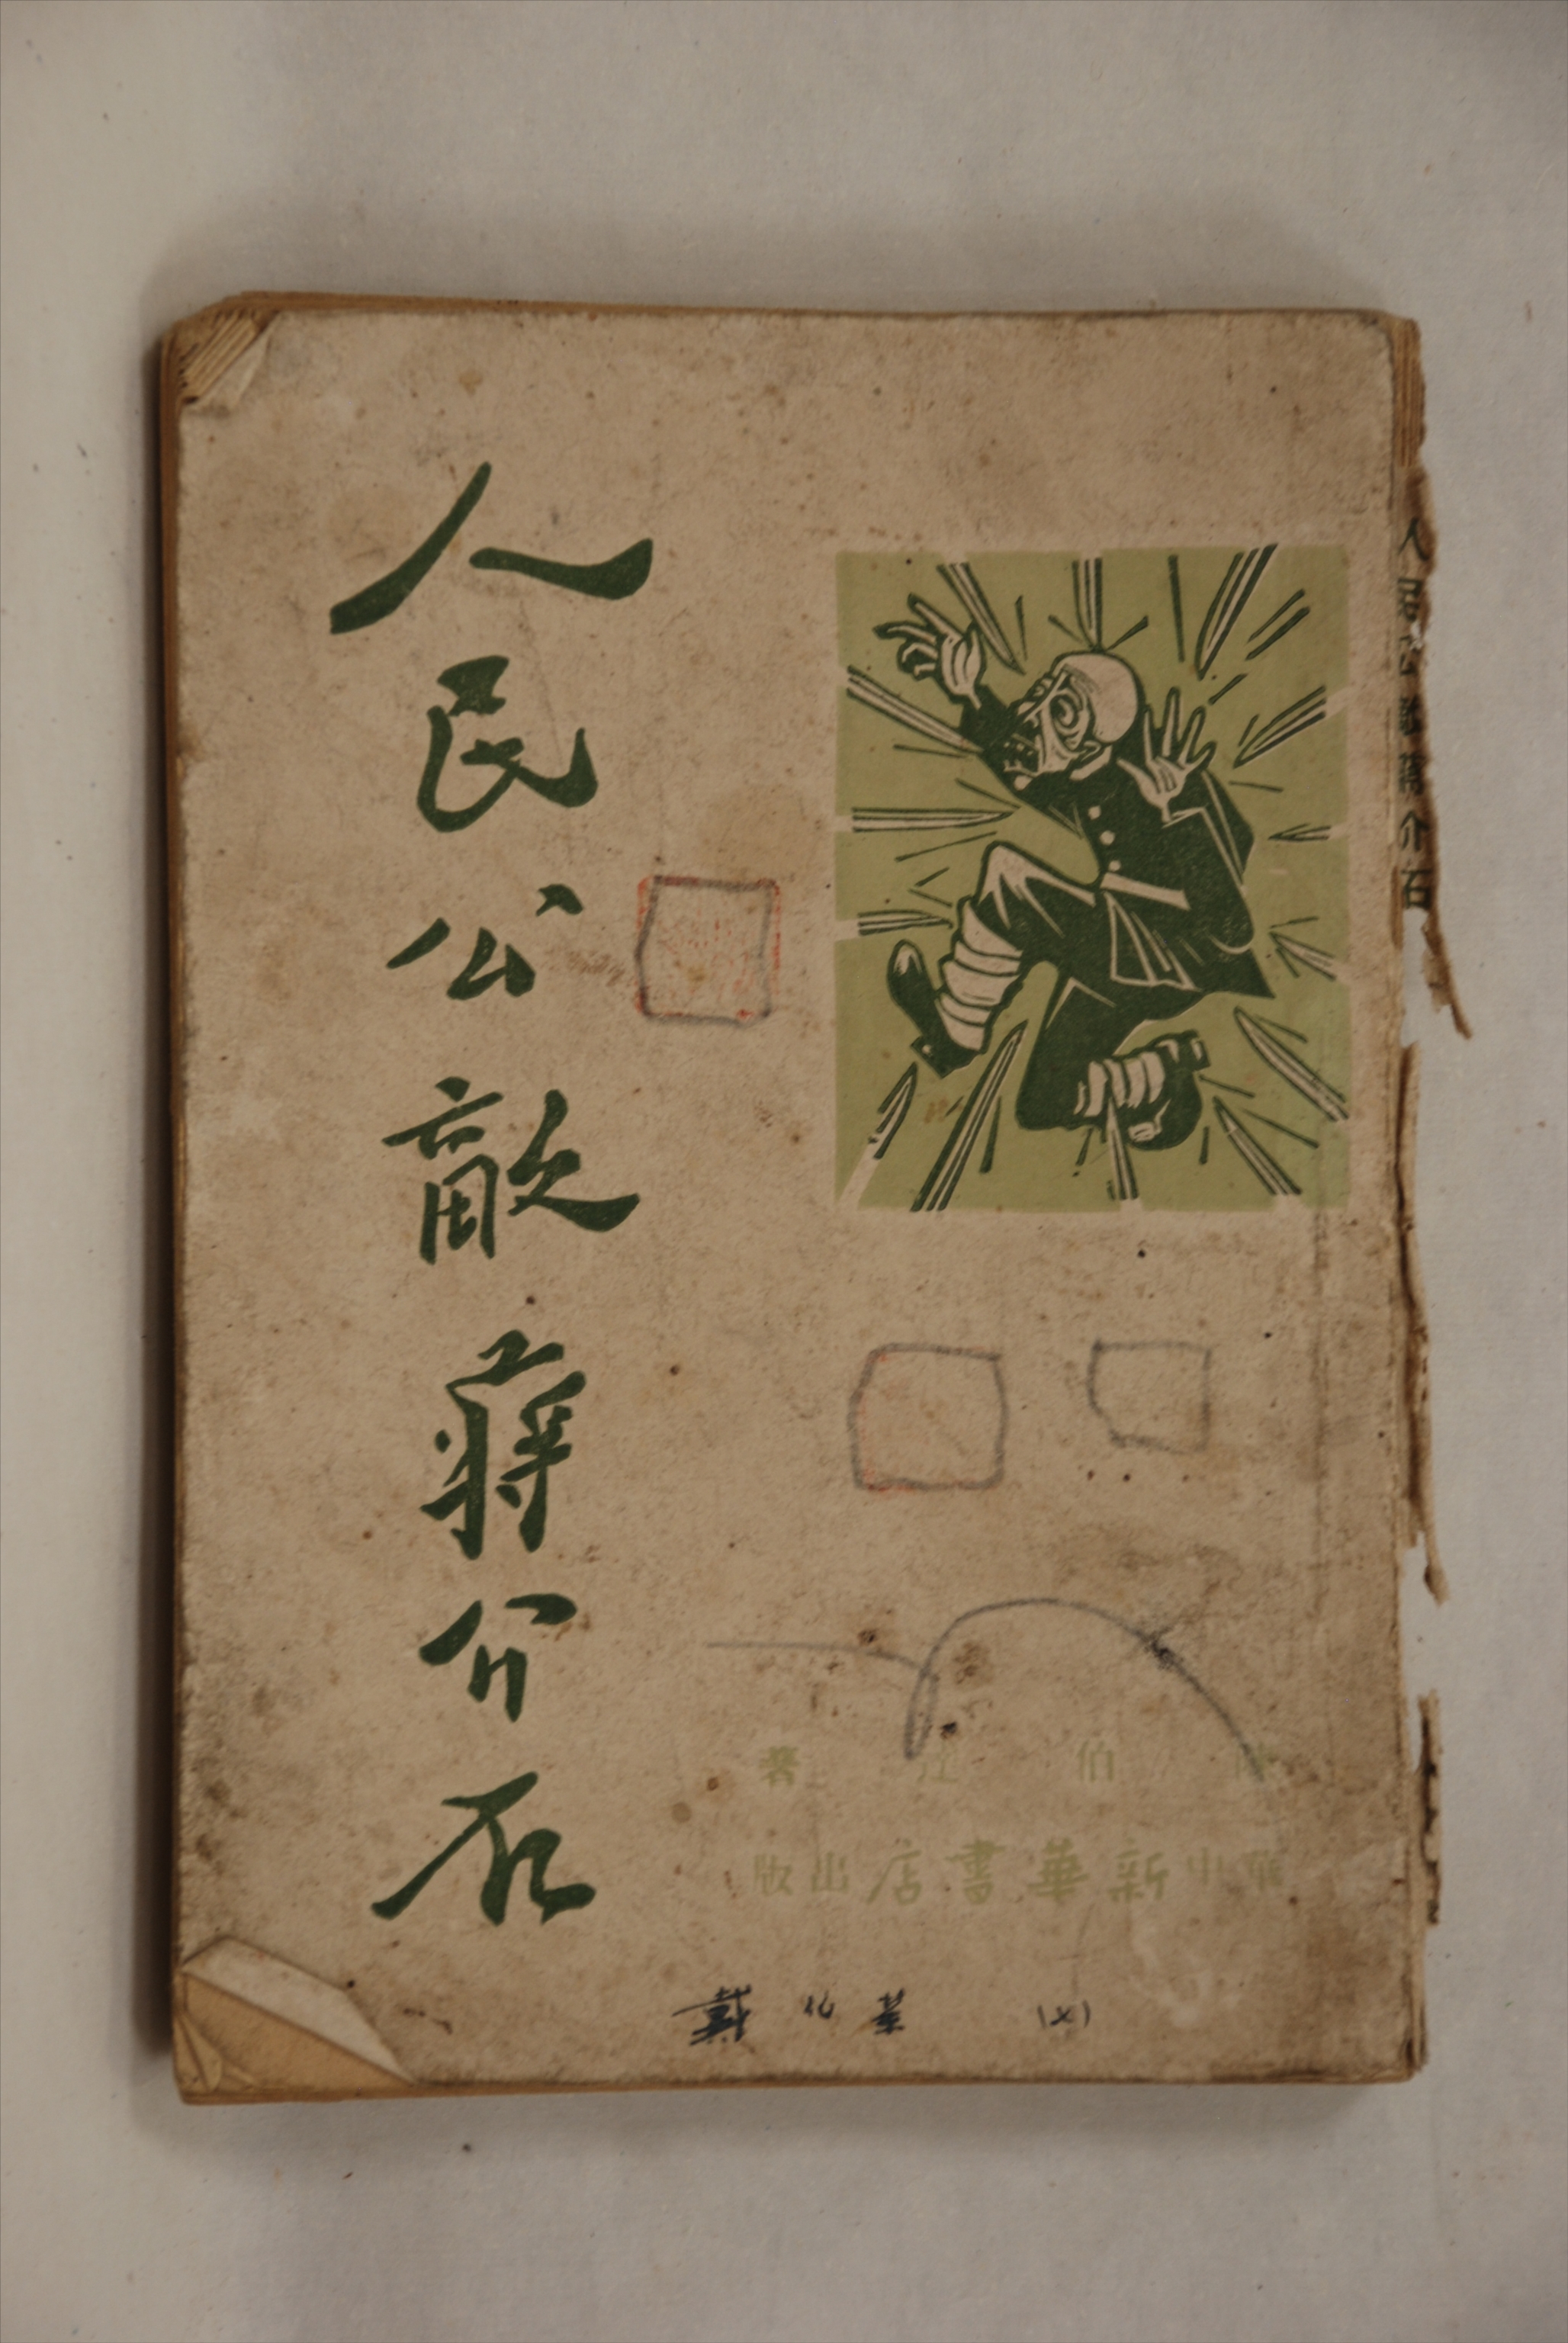 人民公敵蔣介石
人民公敵蔣介石
陳伯达著
華中新華書店出版